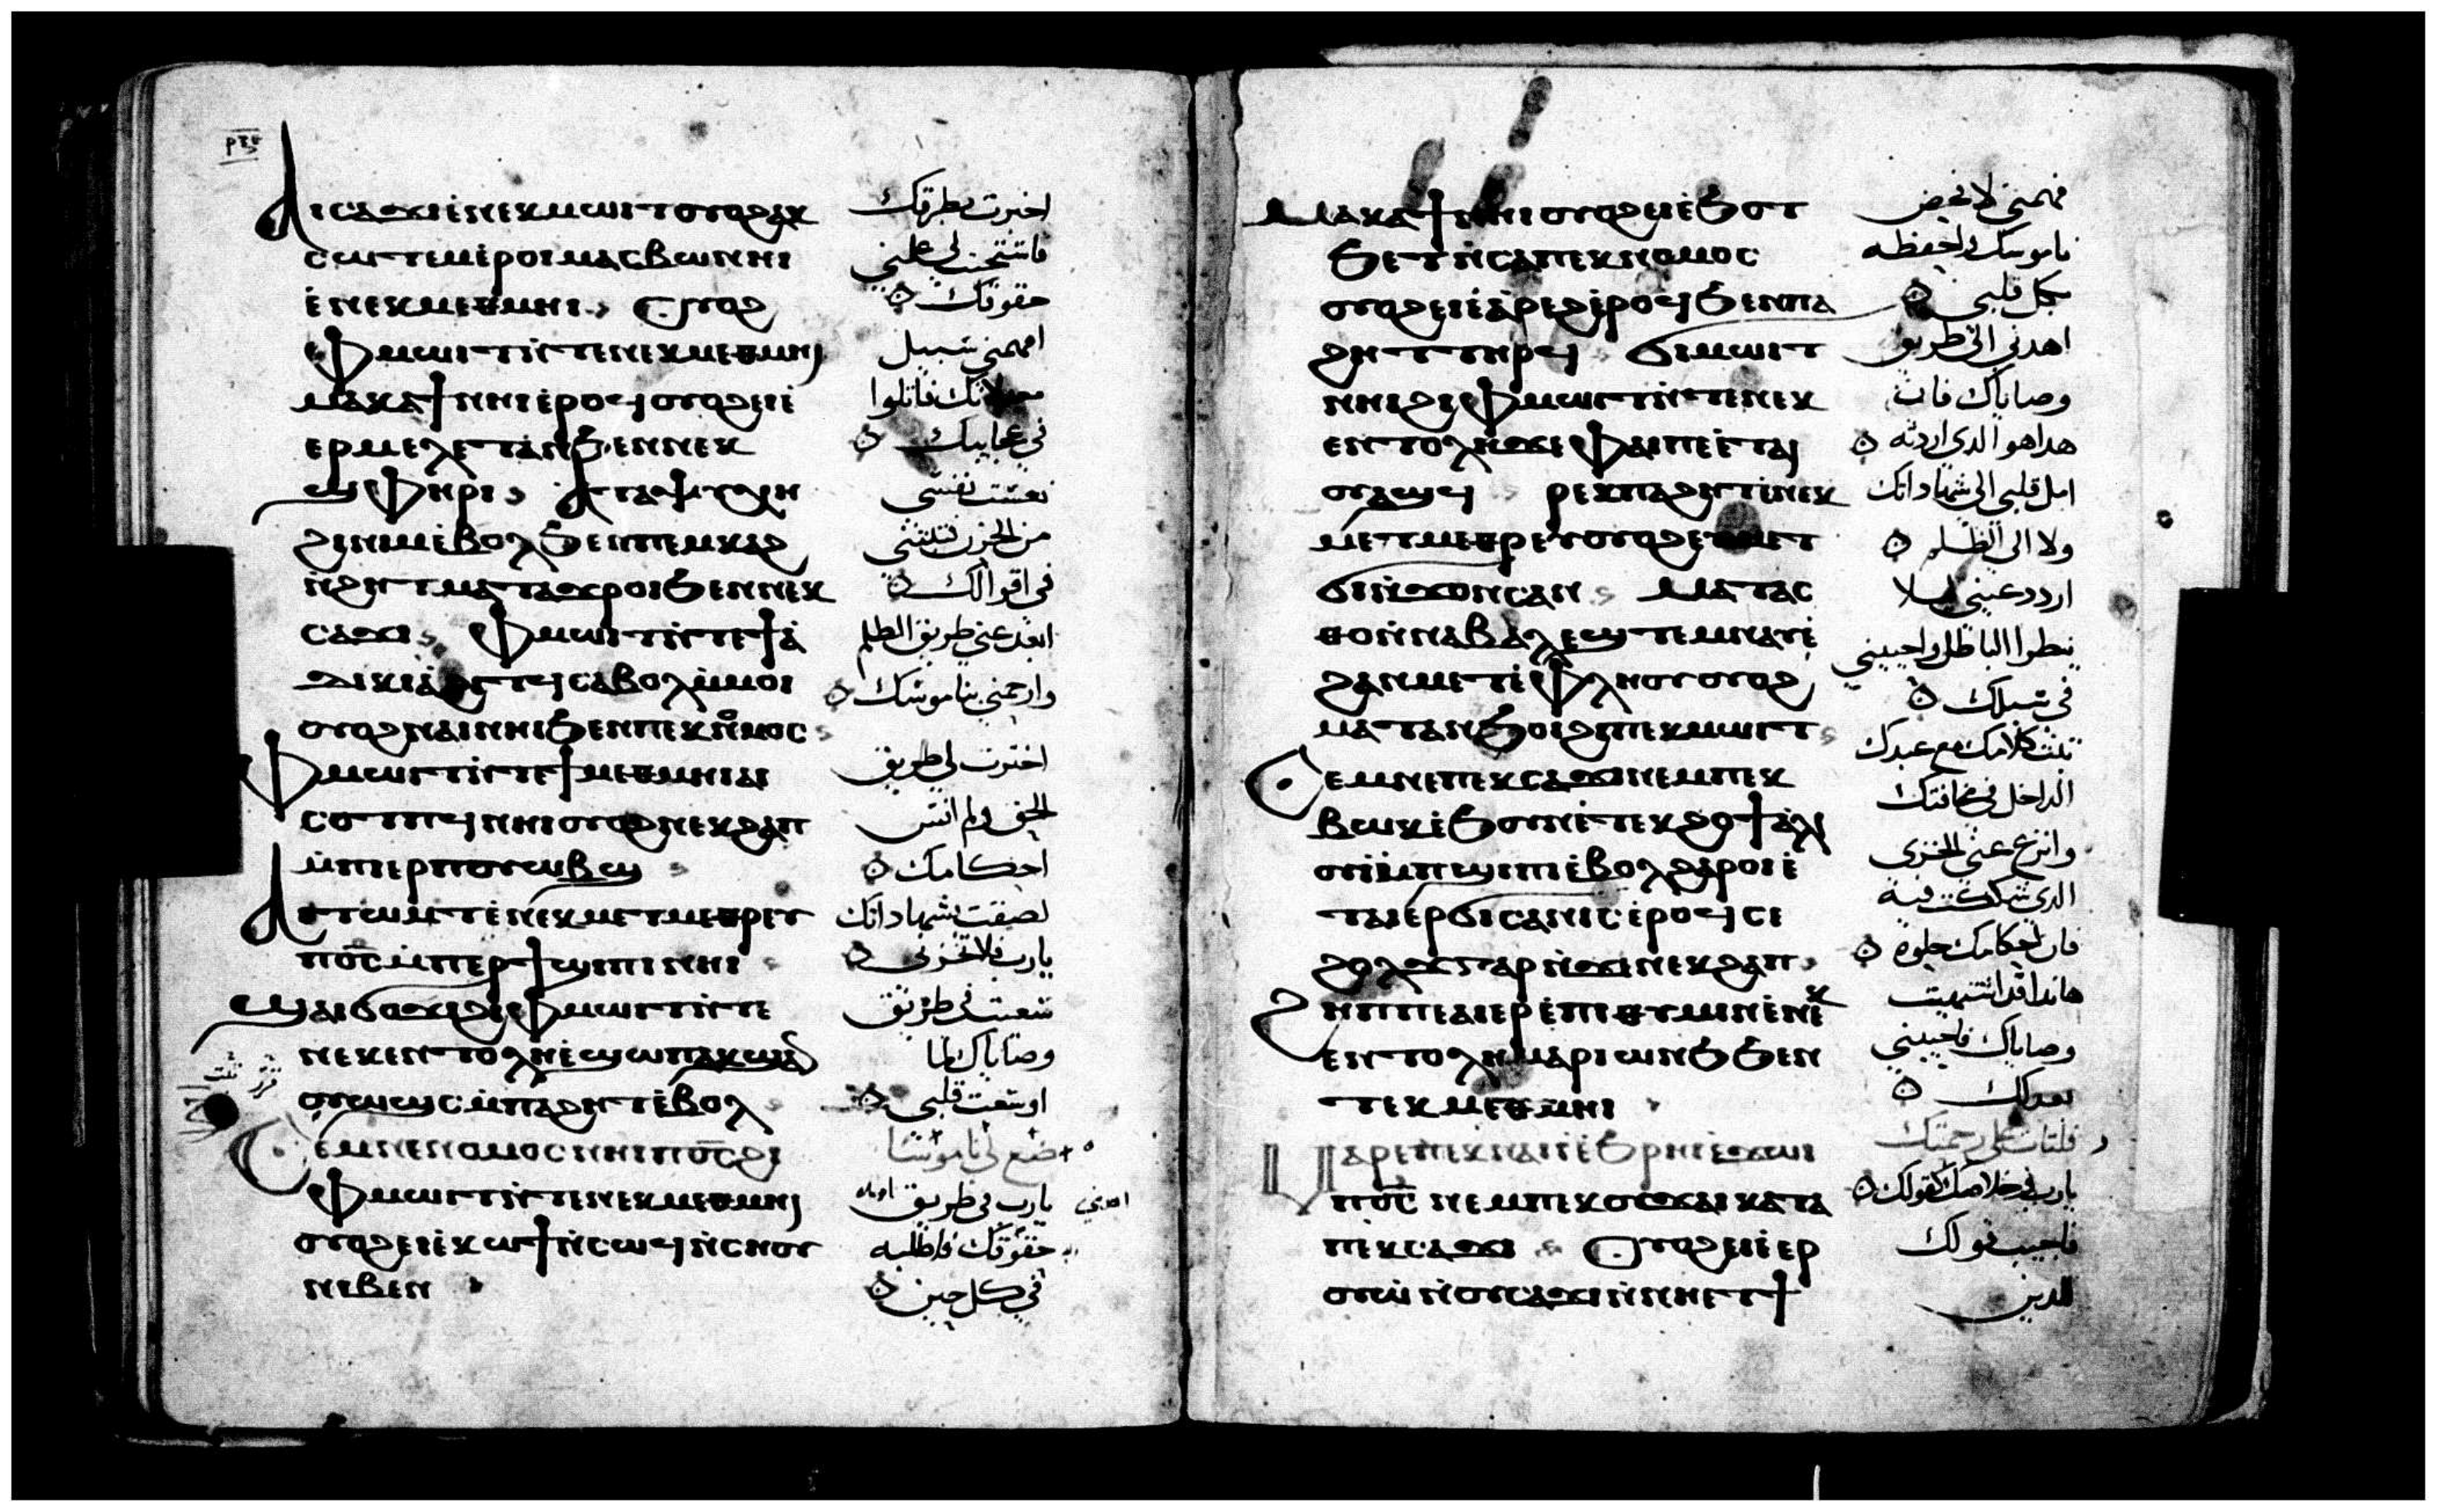 ⲁⲓⲥⲁϫⲓ ⲉ̀ⲛⲉⲕⲙⲱⲓⲧ ⲟⲩⲟϩ ⲁⲕ
ⲥⲱⲧⲉⲙ ⲉ̀ⲣⲟⲓ ⲙⲁⲥⲃⲱ ⲛⲏⲓ
ⲉ̀ⲛⲉⲕⲙⲉⲑⲙⲏⲓ ⲟⲩⲟϩ
ⲫⲙⲱⲓⲧ ⲛ̀ⲧⲉ ⲛⲉⲕⲙⲉⲑⲙⲏⲓ
ⲙⲁⲕⲁϯ ⲛⲏⲓ ⲉ̀ⲣⲟϥ ⲟⲩⲟϩ ⲉⲓⲉ̀
ⲉⲣⲙⲉⲗⲉⲧⲁⲛ ϧⲉⲛ ⲛⲉⲕ
ϣⲫⲏⲣⲓ ⲁⲧⲁⲯⲩⲭⲏ
ϩⲓⲛⲓⲙ ⲉ̀ⲃⲟⲗ ϧⲉⲛ ⲡⲉⲙⲕⲁϩ
ⲛ̀ϩⲏⲧ ⲙⲁⲧⲁϫⲣⲟⲓ ϧⲉⲛ ⲛⲉⲕ
ⲥⲁϫⲓ ⲫⲙⲱⲓⲧ ⲛ̀ⲧⲉ ϯⲁ̀
ⲇⲓⲕⲓⲁ̀ ϩⲓⲧϥ ⲥⲁⲃⲟⲗ ⲙ̀ⲙⲟⲓ
ⲟⲩⲟϩ ⲛⲁⲓ ⲛⲏⲓ ϧⲉⲛ ⲡⲉⲕⲛⲟⲙⲟⲥ
ⲫⲙⲱⲓⲧ ⲛ̀ⲧⲉ ϯⲙⲉⲑⲙⲏⲓ ⲁⲓ
ⲥⲟⲧⲡϥ ⲛⲏⲓ ⲟⲩⲟϩ ⲛⲉⲕϩⲁⲡ
ⲙ̀ⲡⲉⲣⲡⲟⲩⲱⲃϣ
ⲁⲓⲧⲱⲙⲧ ⲉ̀ⲛⲉⲕⲙⲉⲧⲙⲉⲑⲣⲉⲩ
ⲡⲟ̅ⲥ̅ ⲙ̀ⲡⲉⲣϯϣⲓⲡⲓ ⲛⲏⲓ
ⲛⲁⲓϭⲟϫⲓ ϩⲓ ⲫⲙⲱⲓⲧ ⲛ̀ⲧⲉ
ⲛⲉⲕⲉⲛⲧⲟⲗⲏ ⲉ̀ϣⲱⲡ ⲁⲕϣⲁ
ⲟⲩⲱϣⲥ ⲙ̀ⲡⲁϩⲏⲧ ⲉ̀ⲃⲟⲗ
ⲥⲉⲙⲛⲉ ⲛⲟⲙⲟⲥ ⲛⲏⲓ ⲡⲟ̅ⲥ̅ ϩⲓ
ⲫⲙⲱⲓⲧ ⲛ̀ⲧⲉ ⲛⲉⲕⲙⲉⲑⲙⲏⲓ
ⲟⲩⲟϩ ⲉⲓⲉ̀ⲕⲱϯ ⲛ̀ⲥⲱϥ ⲛ̀ⲥⲏⲟⲩ
ⲛⲓⲃⲉⲛ
اخبرت بطرقك
فاستجبت لي علمني
حقوقك
افهمني سبيل
عدلاتك فاتلوا
في عجايبك
نعست نفسي
من الحزن فثبتني
في اقوالك
ابعد عني طريق الظلم
وارحمني بناموسك
اخترت لي طريق
الحق ولم انس
احكامك
لصقت بشهاداتك
يارب فلا تخزني
سعيت في طريق
وصاياك لما
اوسعت قلبي
ضع لي ناموسا
يارب في طريق
حقوقك فاطلبه
في كل حين
ⲙⲁⲕⲁϯ ⲛⲏⲓ ⲟⲩⲟϩ ⲉⲓⲉ̀ϧⲟⲧ
ϧⲉⲧ ⲛ̀ⲥⲁ ⲡⲉⲕⲛⲟⲙⲟⲥ
ⲟⲩⲟϩ ⲉⲓⲉ̀ⲁ̀ⲣⲉϩ ⲉ̀ⲣⲟϥ ϧⲉⲛ ⲡⲁ
ϩⲏⲧ ⲧⲏⲣϥ ϭⲓⲙⲱⲓⲧ
ⲛⲏⲓ ϩⲓ ⲫⲙⲱⲓⲧ ⲛ̀ⲧⲉ ⲛⲉⲕ
ⲉⲛⲧⲟⲗⲏ ϫⲉ ⲫⲁⲓ ⲡⲉⲧⲁⲓ
ⲟⲩⲁϣϥ ⲣⲉⲕ ⲡⲁϩⲏⲧ ⲉ̀ⲛⲉⲕ
ⲙⲉⲧⲙⲉⲑⲣⲉⲩ ⲟⲩⲟϩ ⲉ̀ⲧⲙⲉⲧ
ϭⲓⲛ̀ϫⲟⲛⲥ ⲁⲛ ⲙⲁⲧⲁⲥ
ⲑⲟ ⲛ̀ⲛⲁⲃⲁⲗ ⲉϣⲧⲉⲙⲛⲁⲩ ⲉ̀
ϩⲁⲛⲙⲉⲧⲉ̀ⲫⲗⲏⲟⲩ ⲟⲩⲟϩ
ⲙⲁⲧⲁⲛϧⲟⲓ ϩⲓ ⲡⲉⲕⲙⲱⲓⲧ
ⲥⲉⲙⲛⲉ ⲡⲉⲕⲥⲁϫⲓ ⲛⲉⲙ ⲡⲉⲕ
ⲃⲱⲕ ⲉ̀ϧⲟⲩⲛ ⲉ̀ⲧⲉⲕϩⲟϯ ⲁ̀ⲗⲓ
ⲟⲩⲓ̀ ⲙ̀ⲡϣⲓⲡⲓ ⲉ̀ⲃⲟⲗ ϩⲁⲣⲟⲓ ⲉ̀
ⲧⲁⲓⲉⲣϭⲓⲥⲁⲛⲓⲥ ⲉ̀ⲣⲟϥ ⲥⲉ
ϩⲟⲗϫ ⲅⲁⲣ ⲛ̀ϫⲉ ⲛⲉⲕϩⲁⲡ
ϩⲏⲡⲡⲉ ⲁⲓⲉⲣⲉ̀ⲡⲓⲑⲩⲙⲓⲛ ⲉ̀ⲛⲉⲕ
ⲉⲛⲧⲟⲗⲏ ⲙⲁⲣⲓⲱⲛϧ ϧⲉⲛ
ⲧⲉⲕⲙⲉⲑⲙⲏⲓ
ⲙⲁⲣⲉ ⲡⲉⲕⲛⲁⲓ ⲓ̀ ⲉ̀ϩⲣⲏⲓ ⲉ̀ϫⲱⲓ
ⲡⲟ̅ⲥ̅ ⲛⲉⲙ ⲡⲉⲕⲟⲩϫⲁⲓ ⲕⲁⲧⲁ
ⲡⲉⲕⲥⲁϫⲓ ⲟⲩⲟϩ ⲉⲓⲉ̀ⲉⲣ
ⲟⲩⲱ̀ ⲛ̀ⲟⲩⲥⲁϫⲓ ⲛ̀ⲛⲏⲉⲧϯ
فهمني لافحص
ناموسك واحفظه
بكل قلبي
اهدني الى طريق
وصاياك فان
هدا هو الدي اردته
امل قلبي الى شهاداتك
ولا الى الظلم
اردد عيني ليلا
ينظروا الباطل واحييني
في سبيلك
ثبت كلامك مع عبدك
الداخل في مخافتك
وانزع عني الخزي
الدي شككت فيه
فان احكامك حلوة
هاندا قد اشتهيت
وصاياك فاحييني
بعدلك
فلتات علي رحمتك
يارب وخلاصك كقولك
فاجيب قولك
للدين